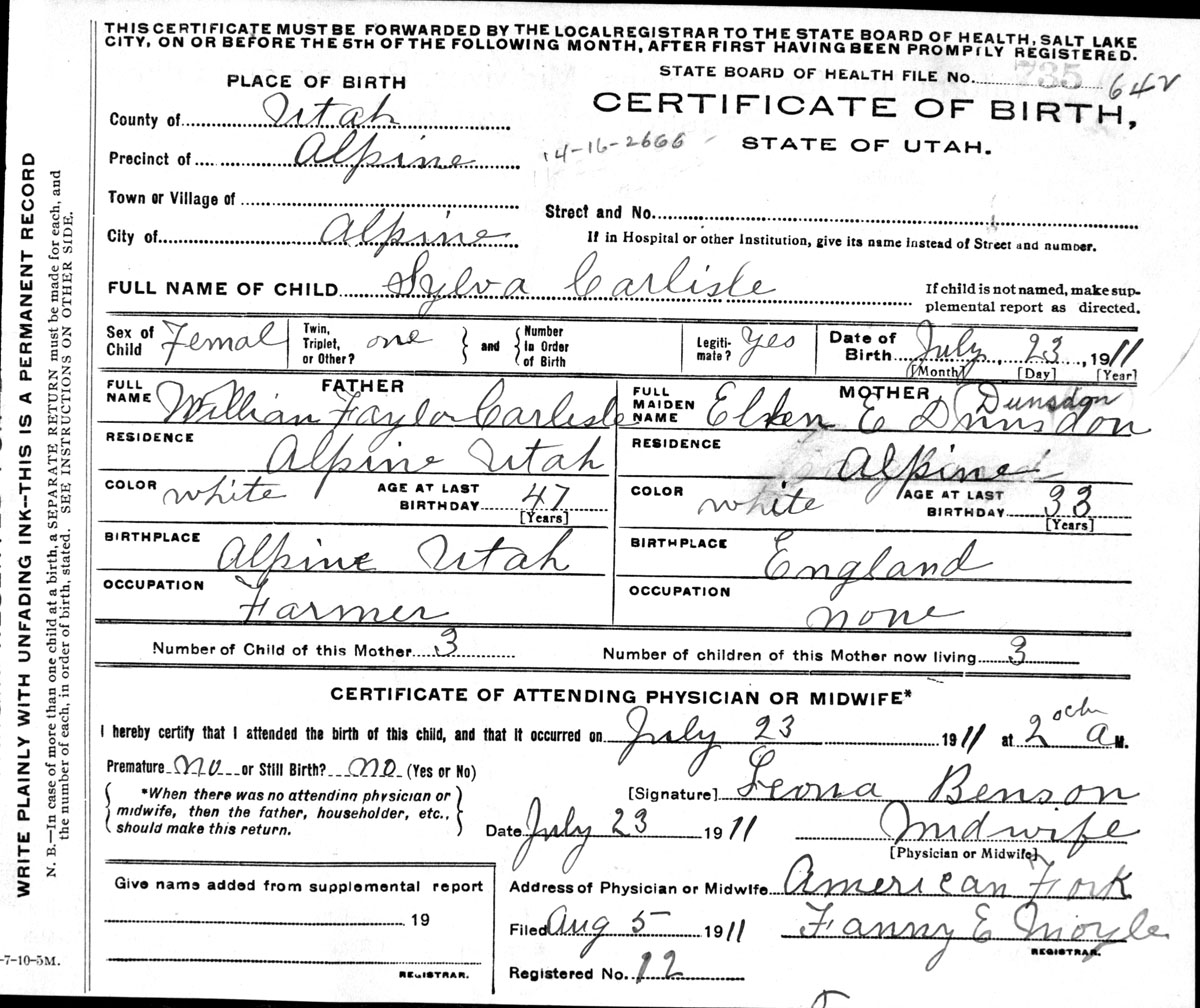 THIS CERTIFICATE MUST BE FORWARDED BY THE LOCALREGISTRAR TO THE STATE BOARD OF HEALTH, SALT LAKE
CITY, ON OR BEFORE THE 5TH OF THE FOLLOWING MONTH, AFTER FIRST HAVING BEEN PROMPTLY REGISTERED.
STATE BOARD OF HEALTH FILE No. 735 642
PLACE OF BIRTH
CERTIFICATE OF BIRTH,
STATE OF UTAH.
County of Utah
Precinct of Alpine
14-16-2666
Town or Village of
Street and No.
City of Alpine
If in Hospital or other Institution, give its name instead of Street and number.
FULL NAME OF CHILD Sylva Carlisle
If child is not named, make sup-
plemental report as directed.
Sex of Child Femal
Twin, Triplet, or Other? one
and
Number In Order of Birth
Legiti-mate? Yes
Date of Birth July 23, 1911
[Month] [Day] [Year]
FATHER
FULL NAME William Taylor Carlisle
MOTHER
FULL MAIDEN NAME Ellen E Dunsdon
Dunsdon
RESIDENCE Alpine Utah
RESIDENCE Alpine
COLOR white AGE AT LAST BIRTHDAY 47
[Years]
COLOR white AGE AT LAST BIRTHDAY 33
[Years]
BIRTHPLACE Alpine Utah
BIRTHPLACE England
OCCUPATION Farmer
OCCUPATION none
Number of Child of this Mother 3
Number of children of this Mother now living 3
CERTIFICATE OF ATTENDING PHYSICIAN OR MIDWIFE*
I hereby certify that I attended the birth of this child, and that it occurred on July 23 1911 at 2 a M.
Premature no or Still Birth? no (Yes or No)
*When there was no attending physician or
midwife, then the father, householder, etc.,
should make this return.
[Signature] Leona Benson
Date July 23 1911 Midwife
[Physician or Midwife]
Give name added from supplemental report
19
REGISTRAR.
Address of Physician or Midwife American Fork
Filed Aug 5 1911 Fanny E Moyle
REGISTRAR.
Registered No. 12
WRITE PLAINLY WITH UNFADING INK—THIS IS A PERMANENT RECORD
N. B.—In case of more than one child at a birth, a SEPARATE RETURN must be made for each, and
the number of each, in order of birth, stated. SEE INSTRUCTIONS ON OTHER SIDE.
-7-10-5M.